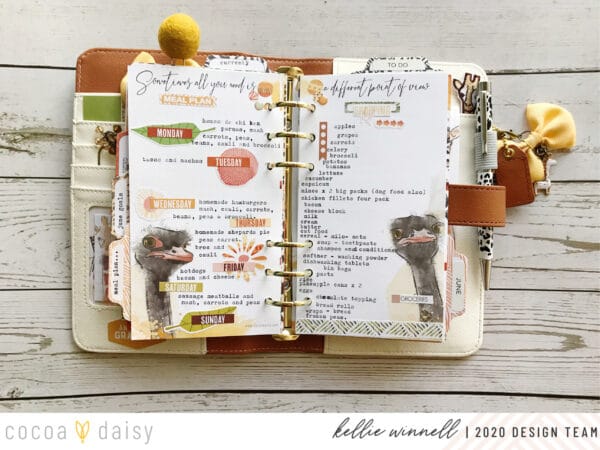 currently
TO DO
Sometimes all you need is
a different point of view
MEAL PLAN
MONDAY
homemade chicken
parmas, mash
carrots, peas,
beans, and broccoli
TUESDAY
WEDNESDAY
homemade hamburgers
mash, carrots,
beans, peas & broccoli
THURSDAY
homemade shepards pie
peas carrot,
FRIDAY
hotdogs
bacon and cheese
SATURDAY
sausage meatballs and
mash, carrots and peas
SUNDAY
apples
grapes
carrots
celery
broccoli
potatoes
beans
lettuce
cucumber
capsicum
mince x 2 big packs (dog food also)
chicken fillets four pack
bacon
cheese block
milk
cream
butter
cat food
cereal - milo- oats
soap - toothpaste
shampoo and conditioner
softner - washing powder
dishwashing tablets
bin bags
pasta
pineapple cans x 2
eggs
chocolate topping
bread rolls
wraps - bread
frozen peas.
GROCERIES
june goals
meal plan...
JUNE
cocoa daisy
kellie winnell | 2020 DESIGN TEAM